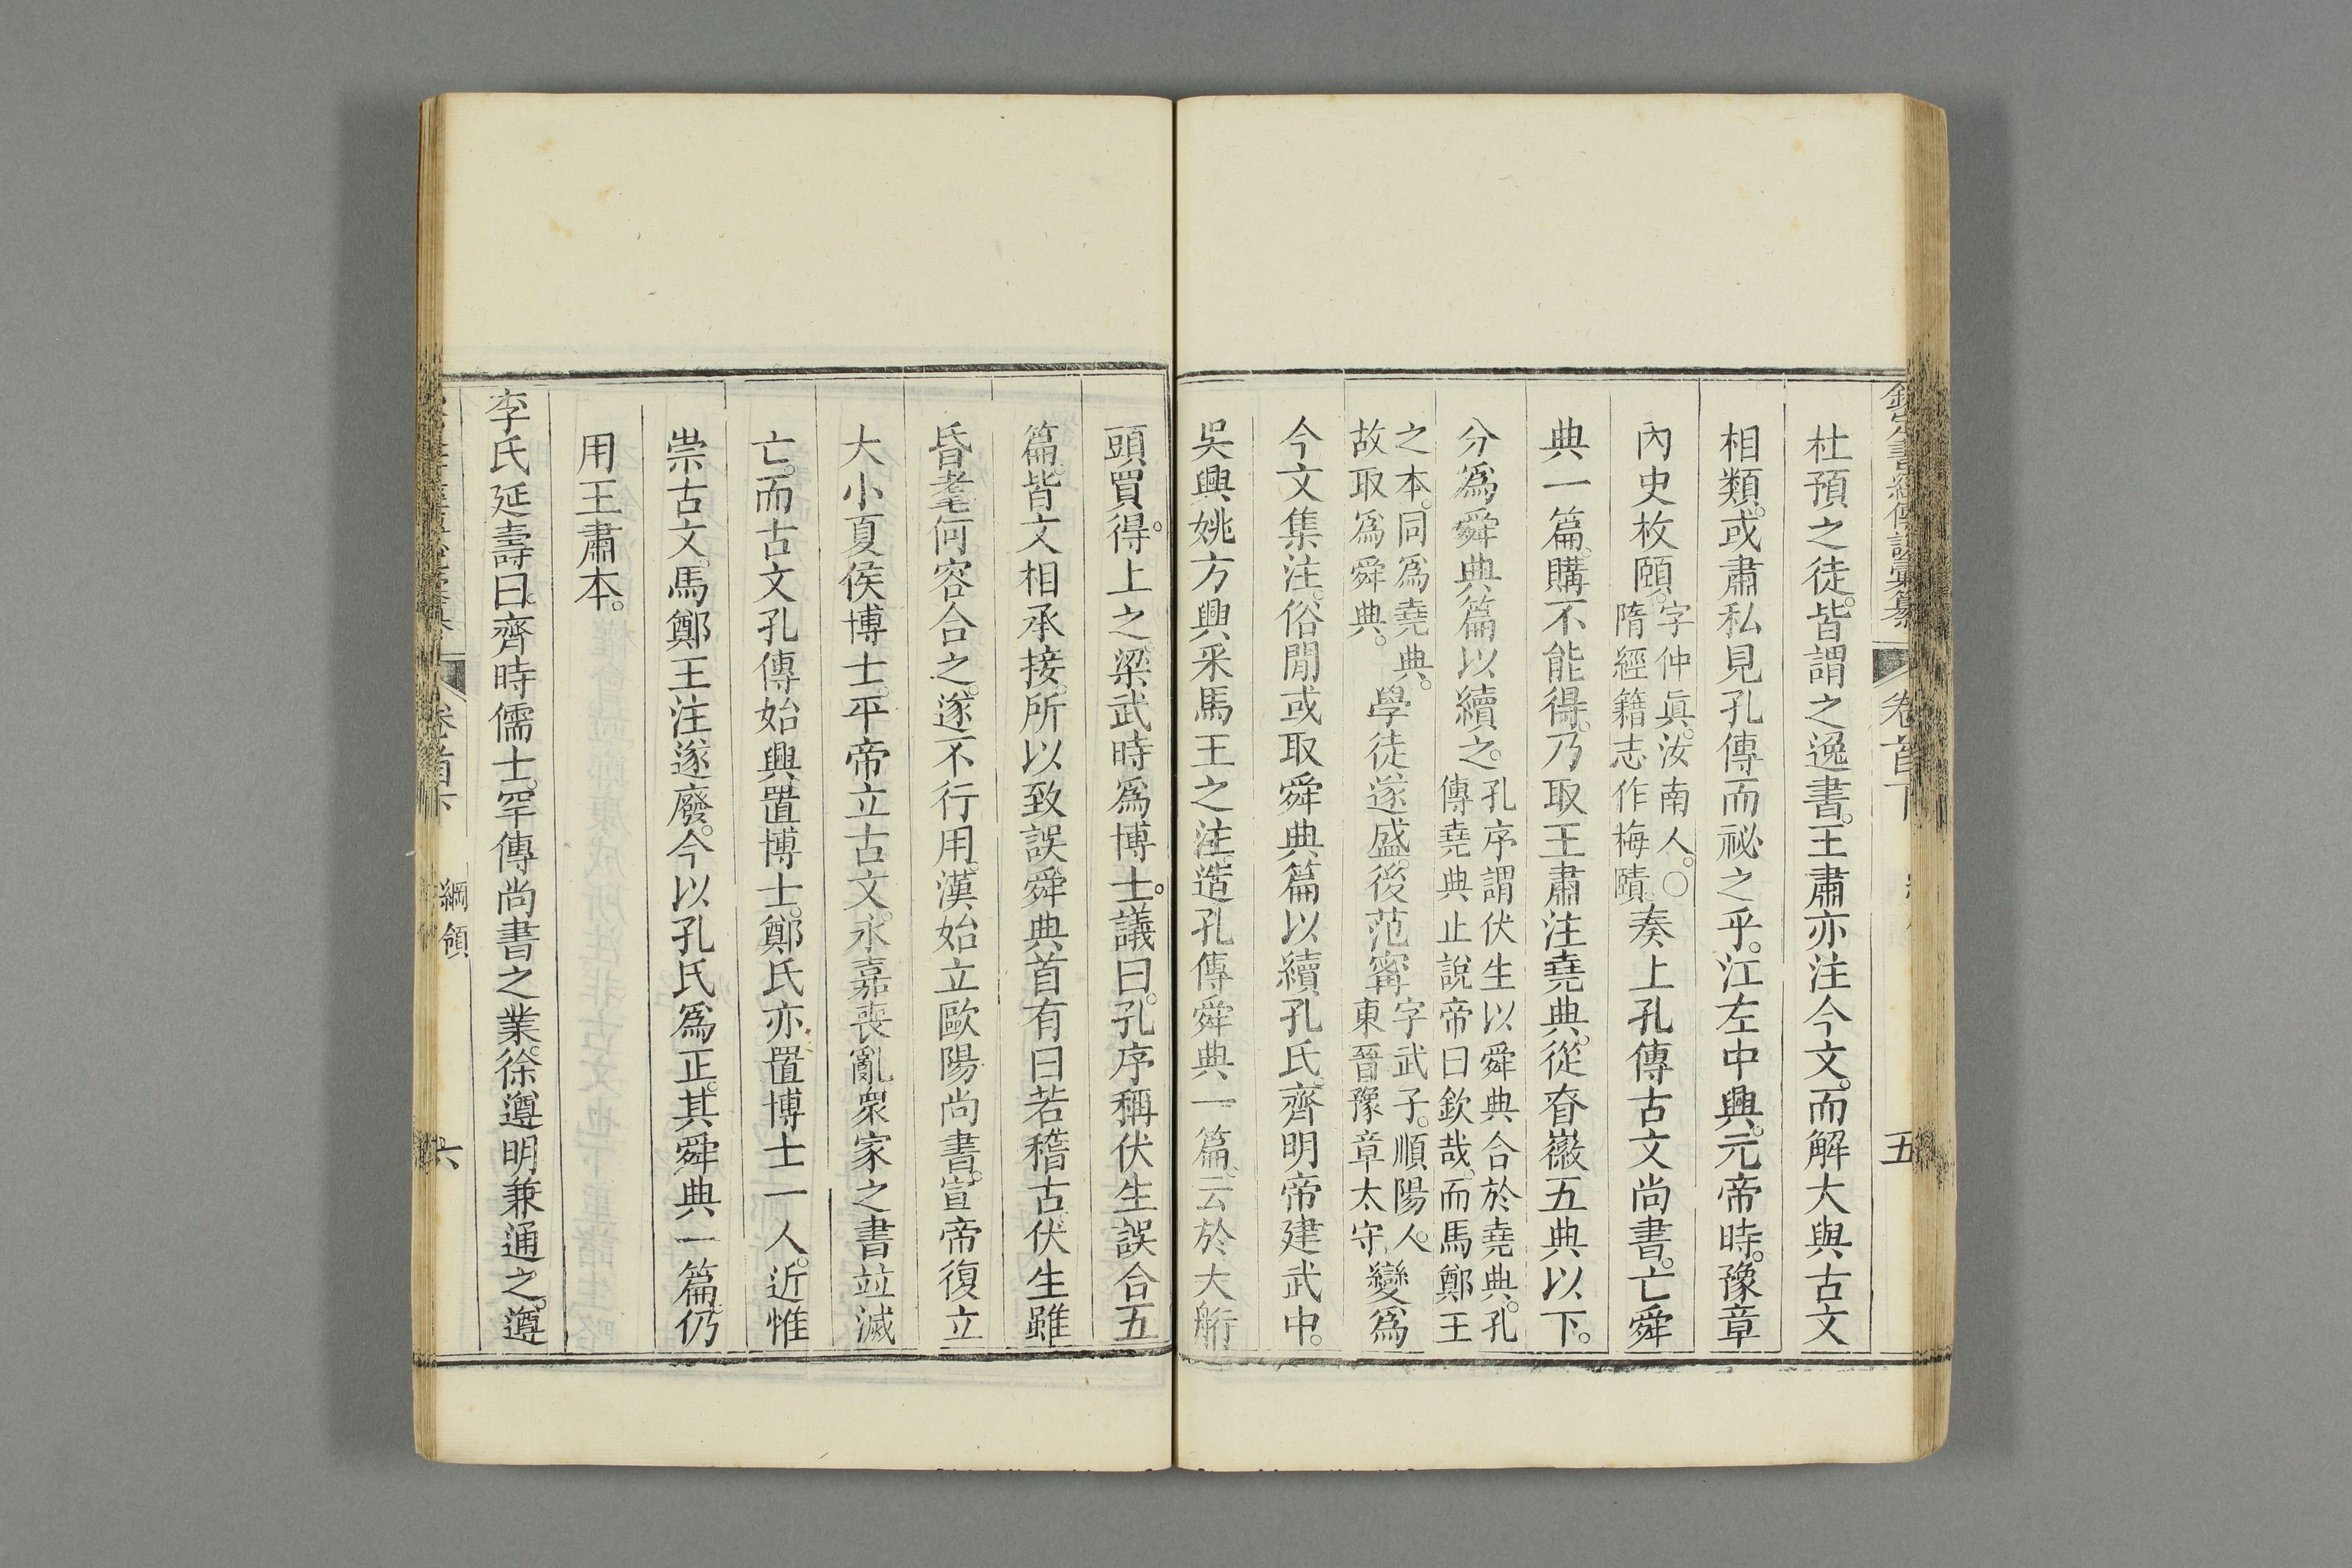 欽定書經傳說彙纂　卷首下　五
杜預之徒。皆謂之逸書。王肅亦注今文。而解大與古文
相類。或肅私見孔傳而祕之乎。江左中興。元帝時。豫章
內史枚頤。字仲眞。汝南人。○隋經籍志作梅賾。奏上孔傳古文尚書。亡舜
典一篇。購不能得。乃取王肅注堯典。從眘徽五典以下。
分爲舜典篇以續之。孔序謂伏生以舜典合於堯典。孔傳堯典止說帝曰欽哉。而馬鄭王
之本。同爲堯典。故取爲舜典。學徒遂盛。後范寗字武子。順陽人。東晉豫章太守。變爲
今文集注。俗閒或取舜典篇以續孔氏。齊明帝建武中。
吳興姚方興采馬王之注。造孔傳舜典一篇。云於大𦨵
頭買得。上之。梁武時爲博士。議曰。孔序稱伏生誤合五
篇。皆文相承接。所以致誤。舜典首有曰若稽古。伏生雖
昏耄。何容合之。遂不行用。漢始立歐陽尚書。宣帝復立
大小夏侯博士。平帝立古文。永嘉喪亂。衆家之書竝滅
亡。而古文孔傳始興。置博士。鄭氏亦置博士一人。近惟
崇古文。馬鄭王注遂廢。今以孔氏爲正。其舜典一篇。仍
用王肅本。
李氏延壽曰。齊時儒士。罕傳尚書之業。徐遵明兼通之。遵
卷首下　綱領　六